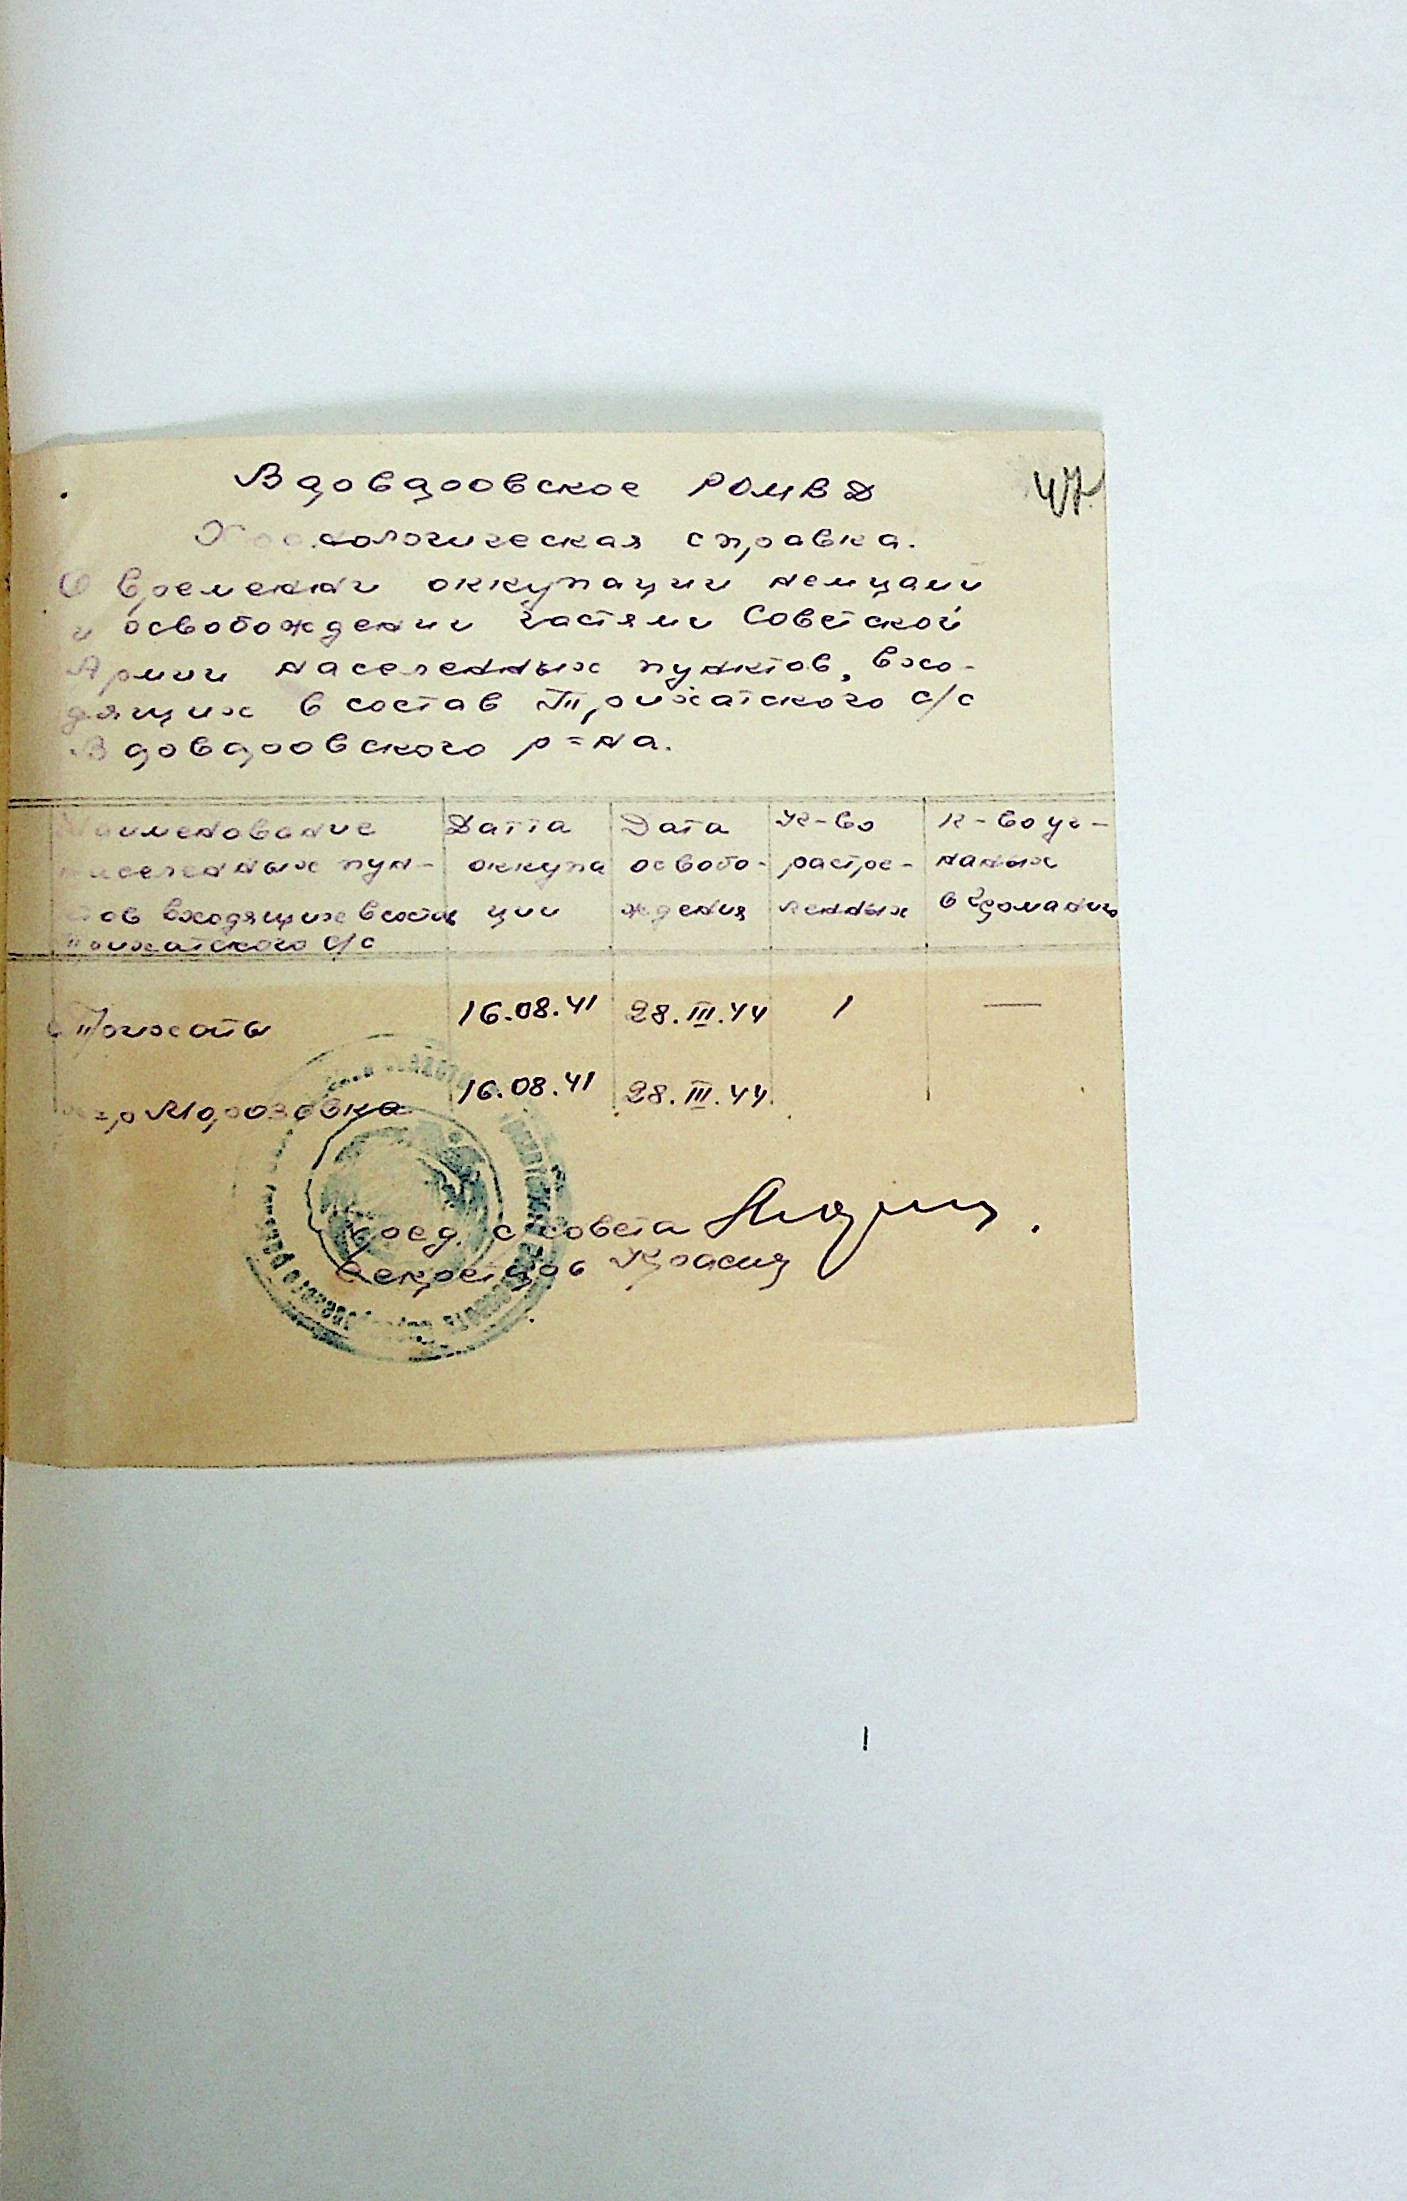 47
Вдовдоовское РОМВД
Хронологическая справка.
О времении оккупации немцами
и освобождении частями Советской
Армии населенных пунктов, вхо-
дящих в состав Трихатского с/с
Вдовдоовского р=на.
Наименование
населенных пун-
тов входящих в состав
Трихатского с/с
Датта
оккупа
ции
Дата
освобо-
ждения
К-во
растре-
ленных
К-во уг-
наных
в Германию
с Трихаты
16.08.41
28.III.44
1
—
Морозовка
16.08.41
28.III.44
Пред. с совета
Секретарь